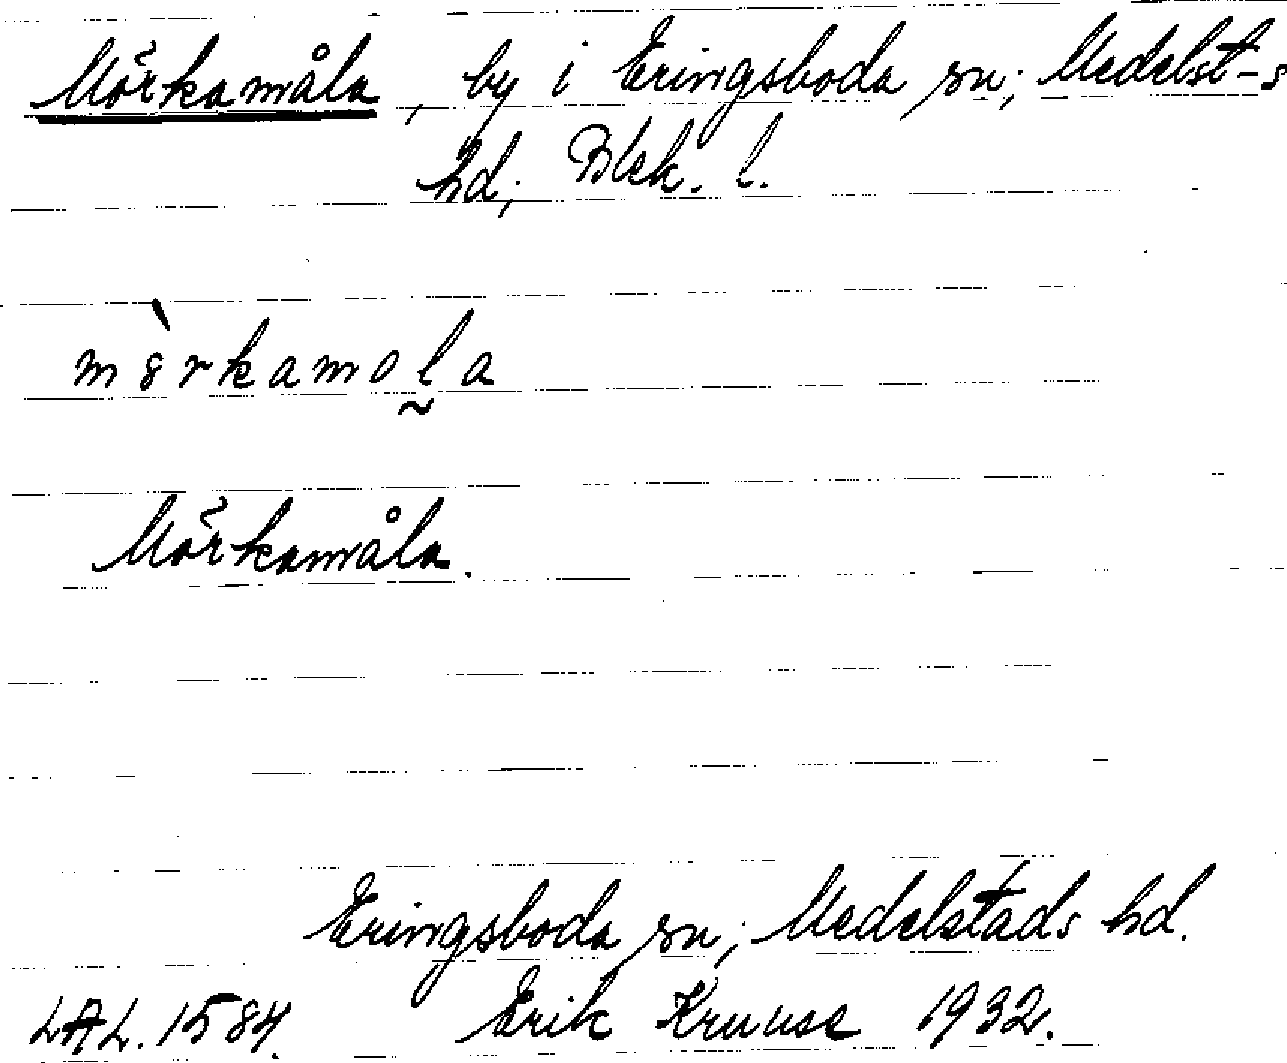 Mörkamåla, by i Eringsboda sn; Medelst-s
hd; Blek. l.
mörkamola
Mörkamåla.
Eringsboda sn; Medelstads hd.
LAL. 1584. Erik Kruuse 1932.